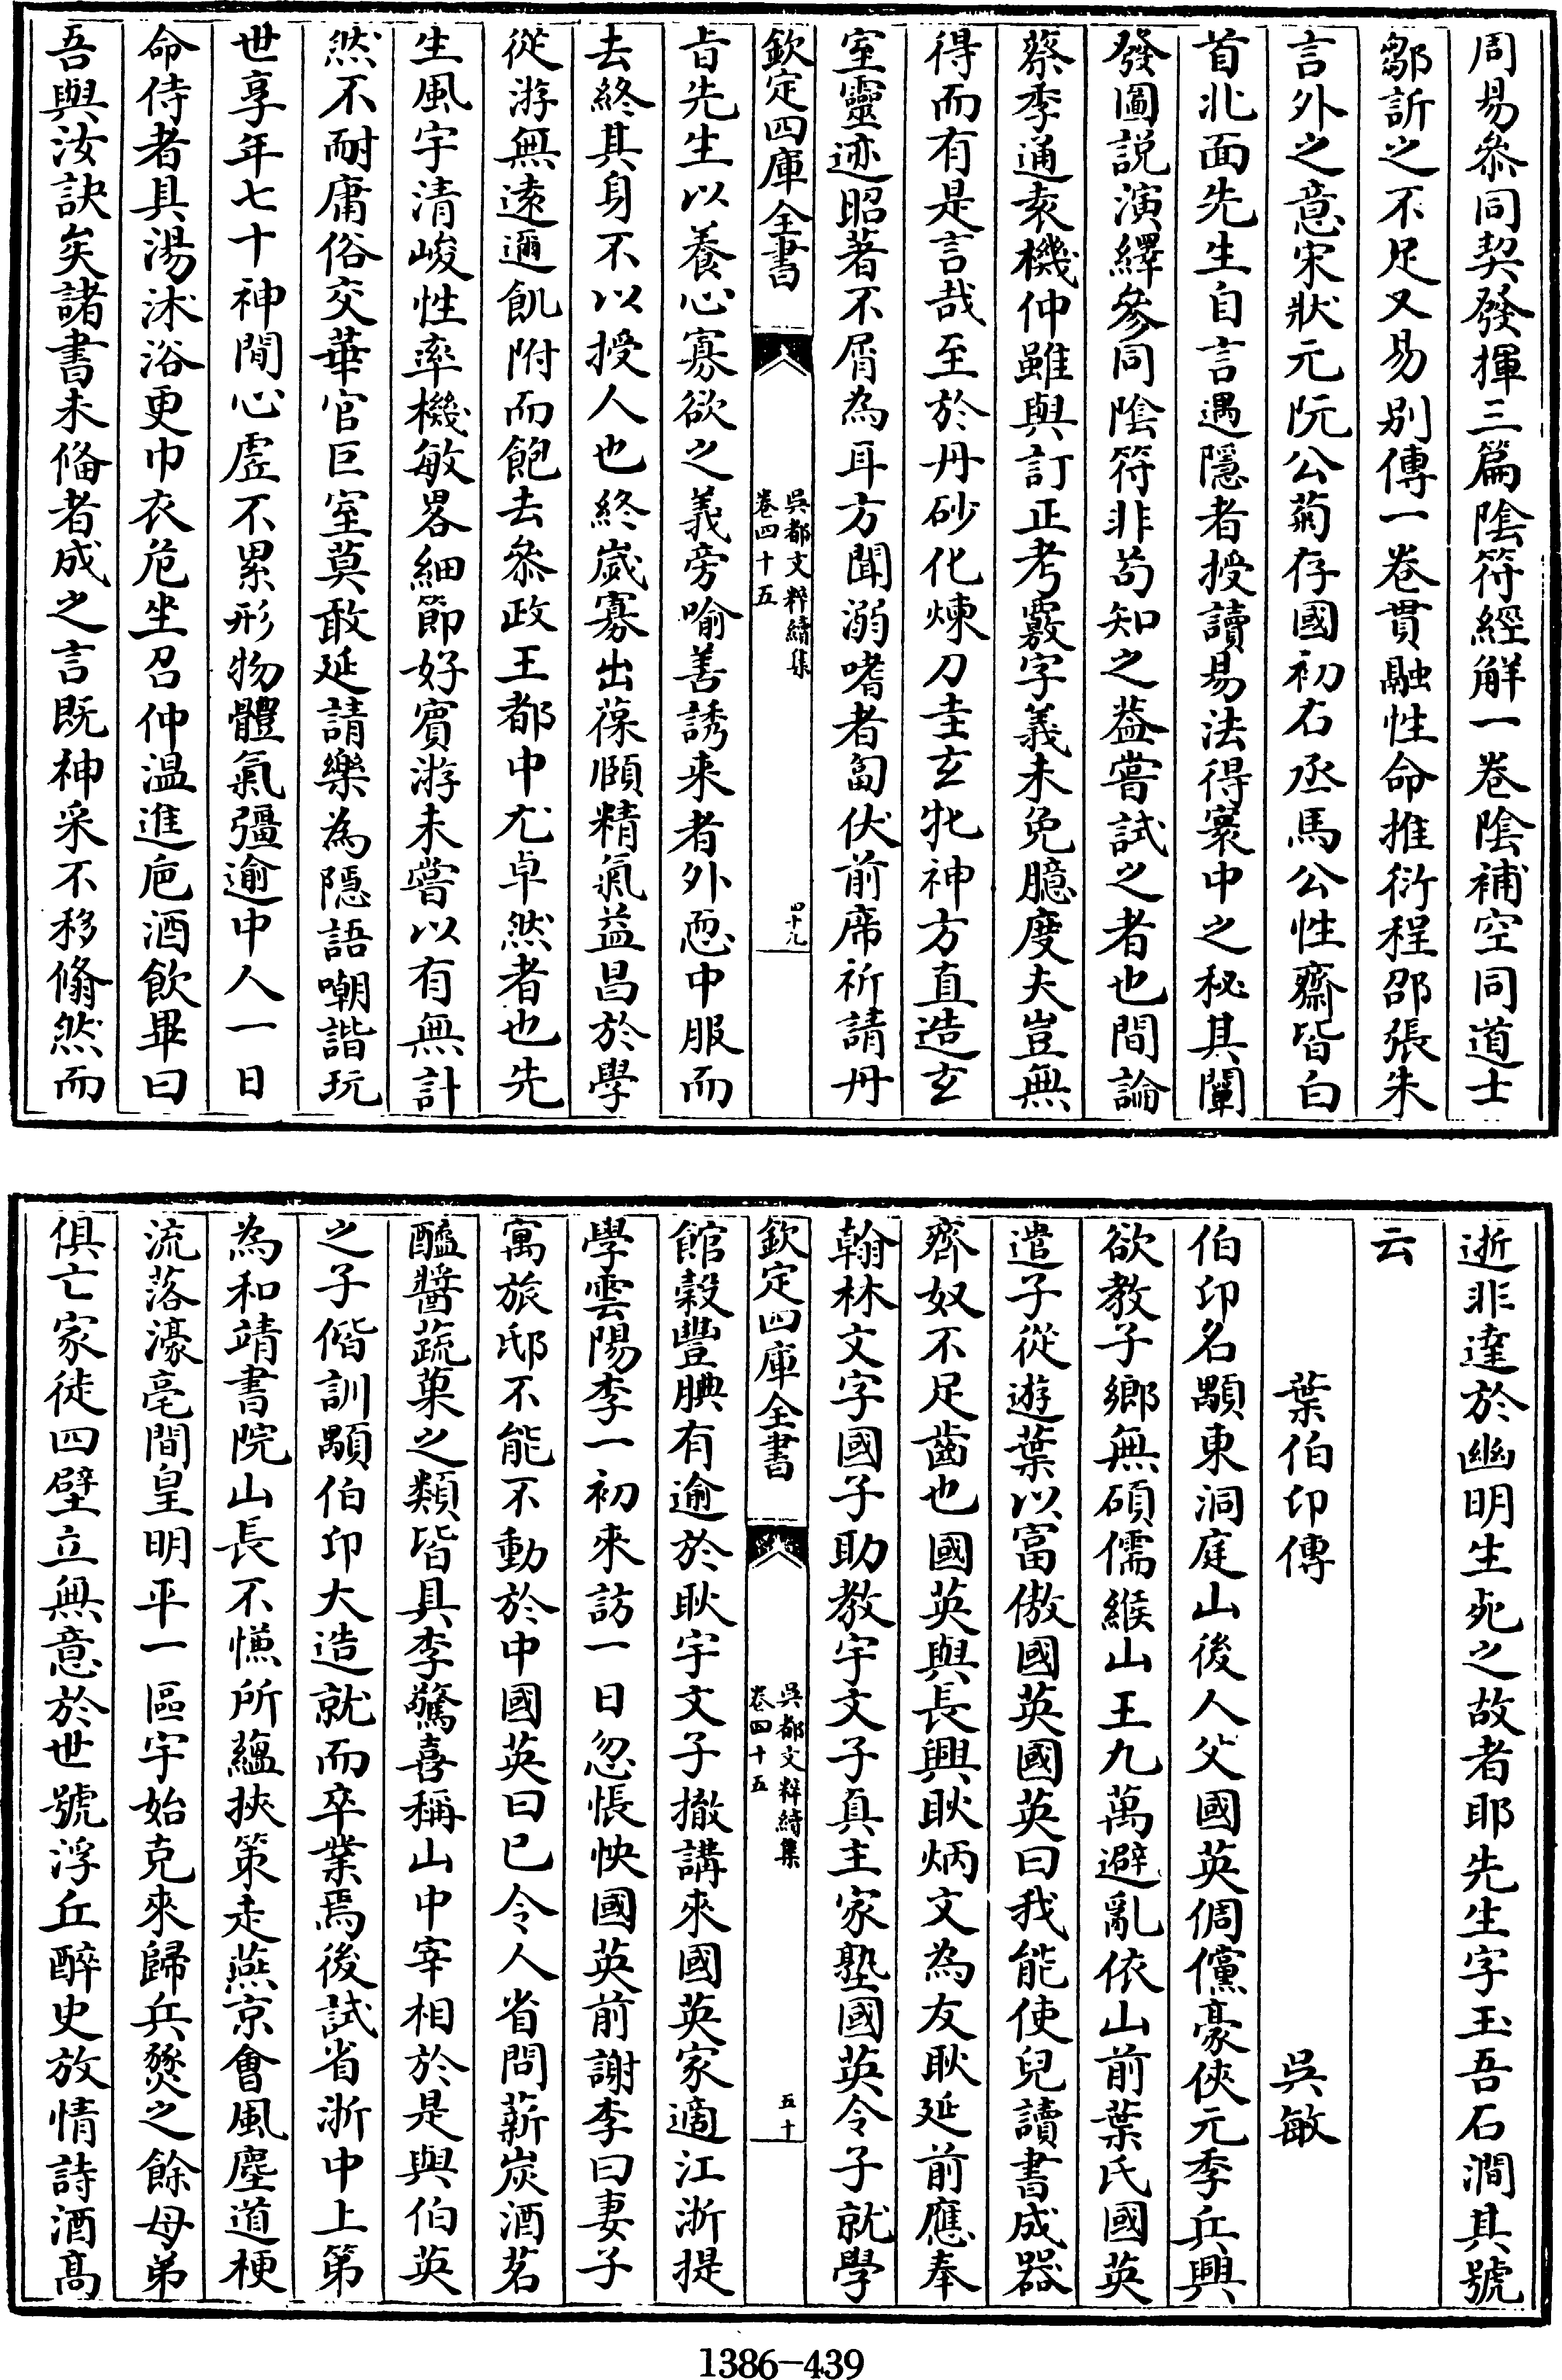 周易叅同契發揮三篇陰符經解一卷陰補空同道士
鄒訢之不足又易别傳一卷貫融性命推衍程邵張朱
言外之意宋狀元阮公菊存國初右丞馬公性齋皆白
首北面先生自言遇隠者授讀易法得寰中之秘其闡
發圖説演繹參同陰符非苟知之葢嘗試之者也間論
蔡季通袁機仲雖與訂正考覈字義未免臆度夫豈無
得而有是言哉至於丹砂化煉刀圭玄牝神方直造玄
室靈迹昭著不屑為耳方聞溺嗜者匐伏前席祈請丹
欽定四庫全書
吳都文粹續集
卷四十五
四十九
㫖先生以養心寡欲之義旁喻善誘来者外恧中服而
去終其身不以授人也終歲寡出葆頤精氣益昌於學
從游無逺邇飢附而飽去叅政王都中尤卓然者也先
生風宇清峻性率機敏畧細節好賓游未嘗以有無計
然不耐庸俗交華官巨室莫敢延請樂為隠語嘲諧玩
世享年七十神閒心虚不累形物體氣彊逾中人一日
命侍者具湯沭浴更巾衣危坐召仲温進巵酒飲畢曰
吾與汝訣矣諸書未脩者成之言既神采不移翛然而
逝非達於幽明生死之故者耶先生字玉吾石澗其號
云
葉伯印傳
吳敏
伯印名顒東洞庭山後人父國英倜儻豪俠元季兵興
欲教子鄉無碩儒緱山王九萬避亂依山前葉氏國英
遣子從遊葉以富傲國英國英曰我能使兒讀書成器
齊奴不足齒也國英與長興耿炳文為友耿延前應奉
翰林文字國子助教宇文子真主家塾國英令子就學
欽定四庫全書
吳都文粹續集
卷四十五
五十
館榖豐腆有逾於耿宇文子撤講來國英家適江浙提
學雲陽李一初來訪一日忽悵怏國英前謝李曰妻子
寓旅邸不能不動於中國英曰已令人省問薪炭酒茗
醯醬蔬菓之類皆具李驚喜稱山中宰相於是與伯英
之子偕訓顒伯印大造就而卒業焉後試省浙中上第
為和靖書院山長不慊所藴挾策走燕京會風塵道梗
流落濠亳間皇明平一區宇始克來歸兵燹之餘母弟
俱亡家徒四壁立無意於世號浮丘醉史放情詩酒髙
1386-439